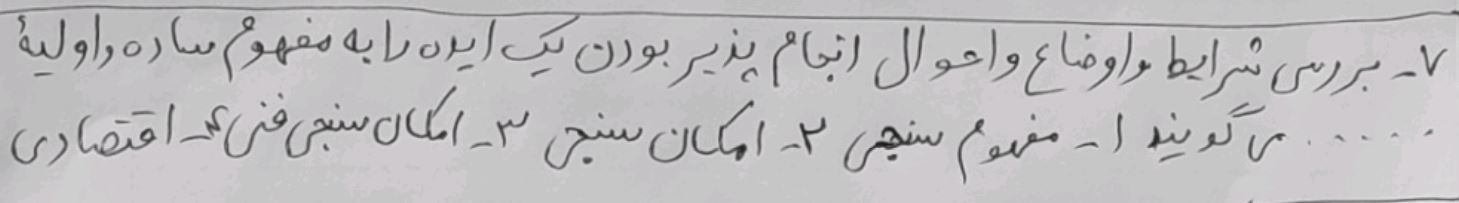 ۷- بررسی شرایط و اوضاع و احوال انجام پذیر بودن یک ایده را به مفهوم ساده و اولیهٔ
..... می گویند ۱- مفهوم سنجی ۲- امکان سنجی ۳- امکان سنجی فنی ۴- اقتصادی